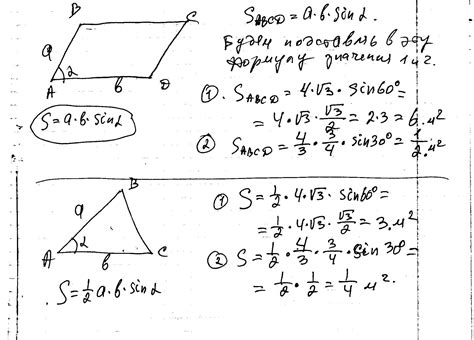 B C
S_ABCD = a·b·sin α.
Будем подставлять в эту
формулу значения 1 и 2.
a α
A b D
S = a·b·sin α
① S_ABCD = 4·√3·sin 60° =
= 4·√3·√3/2 = 2·3 = 6 м²
② S_ABCD = 4/3·3/4·sin 30° = 1/2 м²
B
a α
A b C
S = 1/2 a·b·sin α
① S = 1/2·4·√3·sin 60° =
= 1/2·4·√3·√3/2 = 3 м²
② S = 1/2·4/3·3/4·sin 30° =
= 1/2·1/2 = 1/4 м².